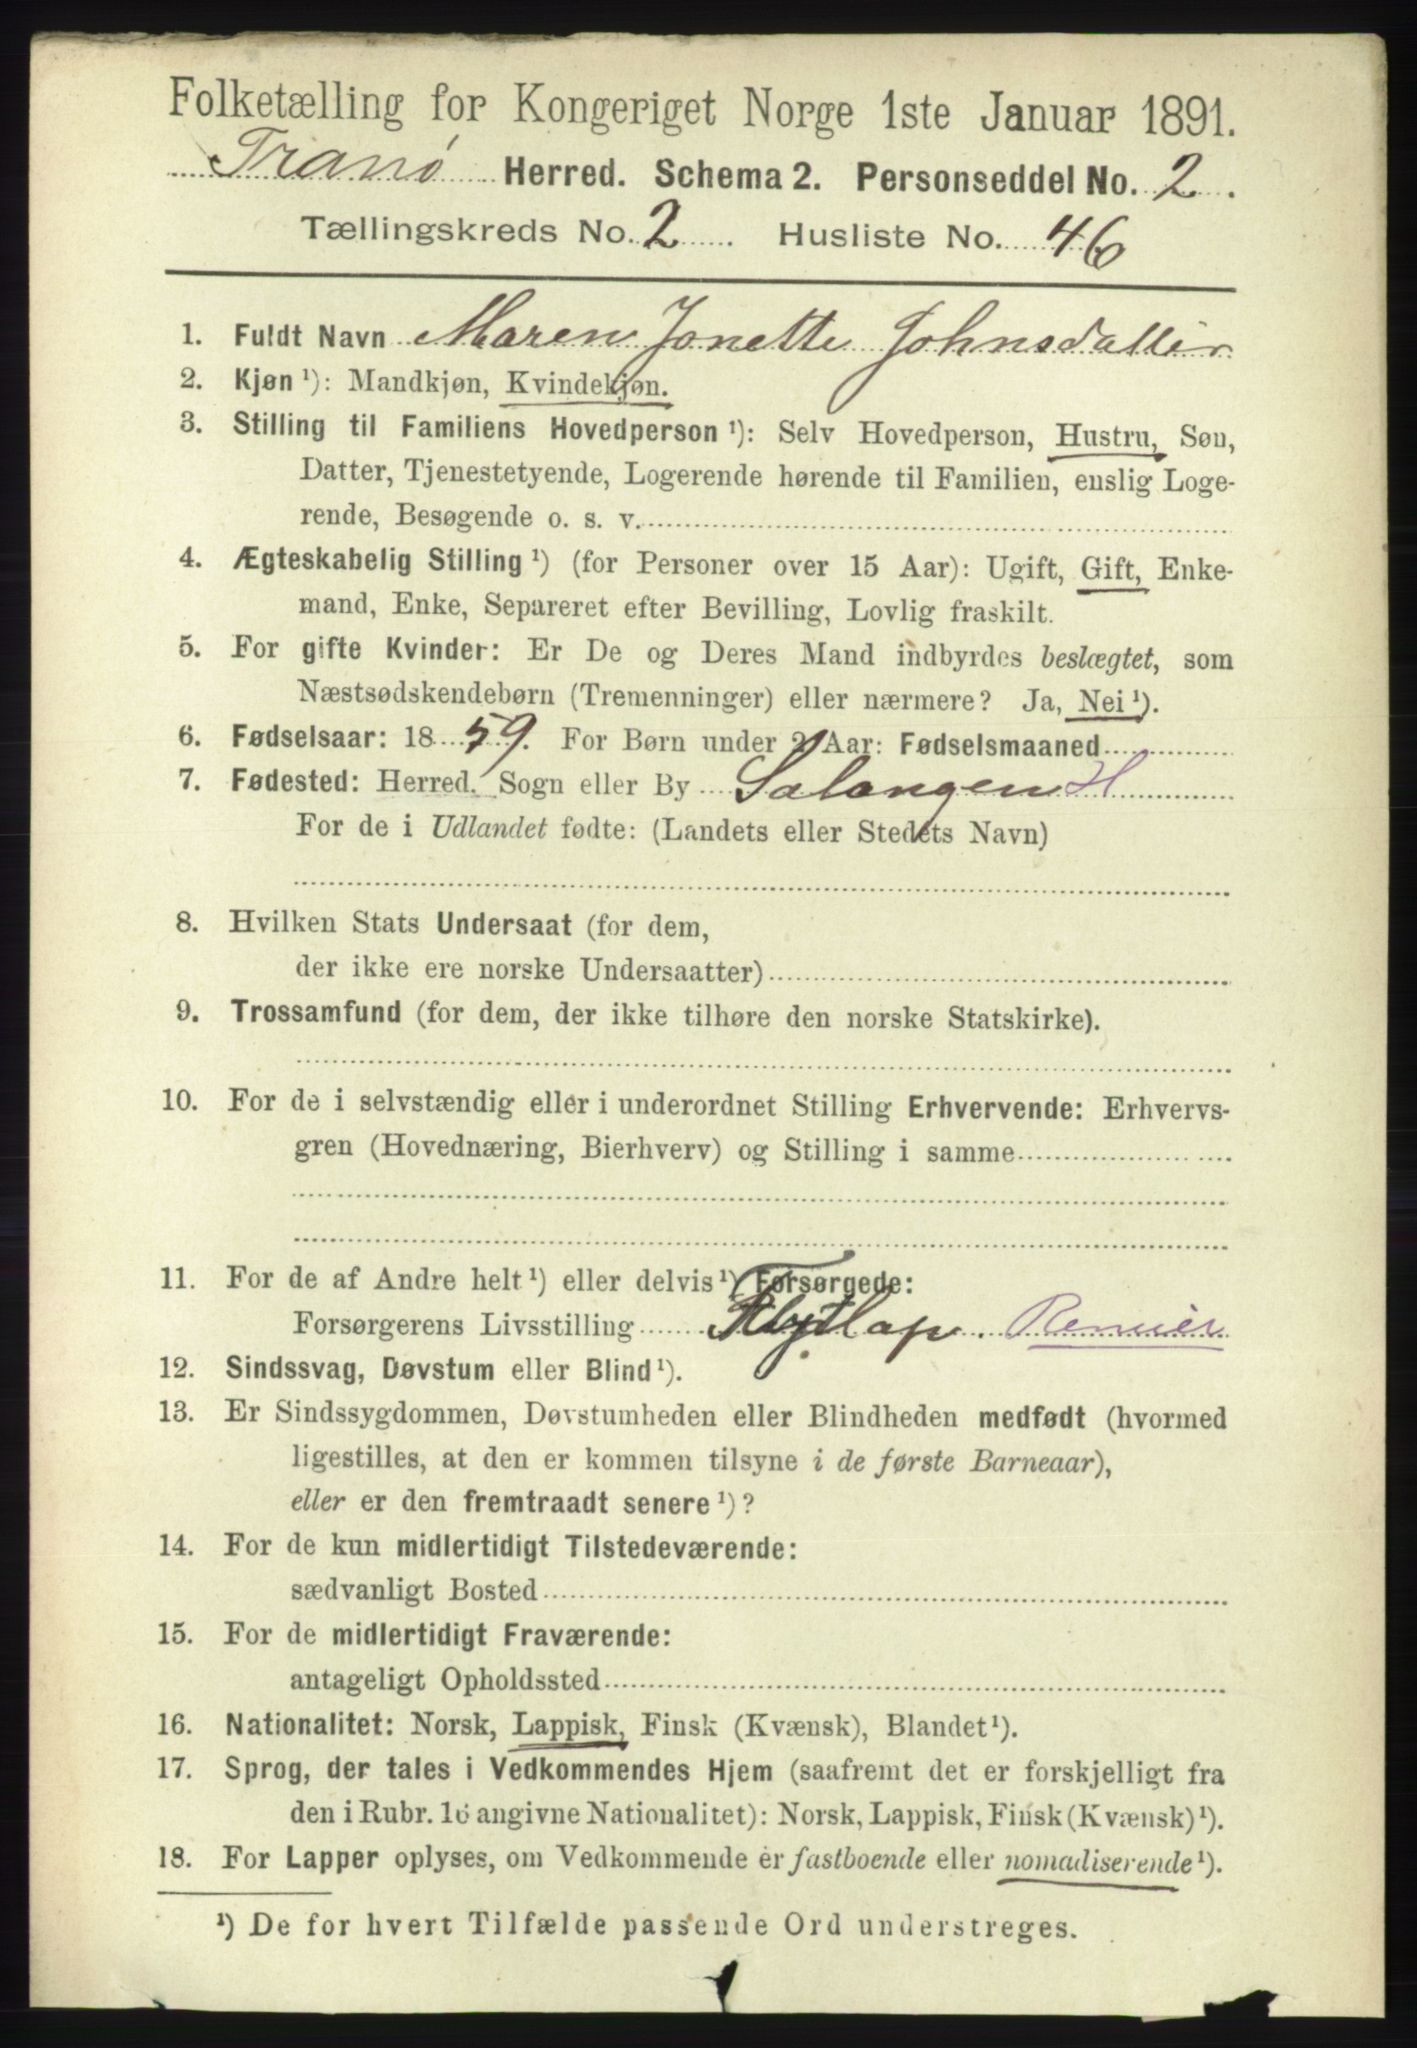 Folketælling for Kongeriget Norge 1ste Januar 1891.
Tranø Herred. Schema 2. Personseddel No. 2.
Tællingskreds No. 2 Husliste No. 46
1. Fuldt Navn Maren Jonette Johnsdatter
2. Kjøn ¹): Mandkjøn, Kvindekjøn.
3. Stilling til Familiens Hovedperson ¹): Selv Hovedperson, Hustru, Søn,
Datter, Tjenestetyende, Logerende hørende til Familien, enslig Loge-
rende, Besøgende o. s. v.
4. Ægteskabelig Stilling ¹) (for Personer over 15 Aar): Ugift, Gift, Enke-
mand, Enke, Separeret efter Bevilling, Lovlig fraskilt.
5. For gifte Kvinder: Er De og Deres Mand indbyrdes beslægtet, som
Næstsødskendebørn (Tremenninger) eller nærmere? Ja, Nei ¹).
6. Fødselsaar: 1859. For Børn under 2 Aar: Fødselsmaaned
7. Fødested: Herred, Sogn eller By Salangen H
For de i Udlandet fødte: (Landets eller Stedets Navn)
8. Hvilken Stats Undersaat (for dem,
der ikke ere norske Undersaatter)
9. Trossamfund (for dem, der ikke tilhøre den norske Statskirke).
10. For de i selvstændig eller i underordnet Stilling Erhvervende: Erhvervs-
gren (Hovednæring, Bierhverv) og Stilling i samme
11. For de af Andre helt ¹) eller delvis ¹) Forsørgede:
Forsørgerens Livsstilling Flytlap.
12. Sindssvag, Døvstum eller Blind ¹).
13. Er Sindssygdommen, Døvstumheden eller Blindheden medfødt (hvormed
ligestilles, at den er kommen tilsyne i de første Barneaar),
eller er den fremtraadt senere ¹)?
14. For de kun midlertidigt Tilstedeværende:
sædvanligt Bosted
15. For de midlertidigt Fraværende:
antageligt Opholdssted
16. Nationalitet: Norsk, Lappisk, Finsk (Kvænsk), Blandet ¹).
17. Sprog, der tales i Vedkommendes Hjem (saafremt det er forskjelligt fra
den i Rubr. 16 angivne Nationalitet): Norsk, Lappisk, Finsk (Kvænsk) ¹).
18. For Lapper oplyses, om Vedkommende er fastboende eller nomadiserende ¹).
¹) De for hvert Tilfælde passende Ord understreges.